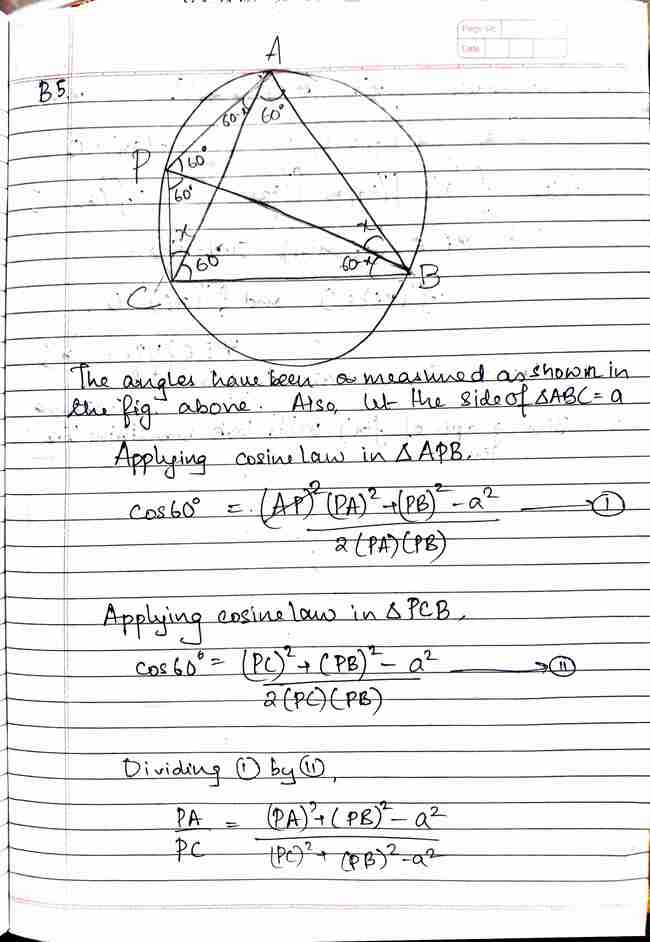 Page No.
Date
B5.
A
60-x
60°
P
60°
60°
x
60°
x
60-x
C
B
The angles have been measured as shown in
the fig. above. Also, let the side of ΔABC = a
Applying cosine law in ΔAPB,
cos60° = (PA)² + (PB)² - a² / 2(PA)(PB) → (I)
Applying cosine law in ΔPCB,
cos60° = (PC)² + (PB)² - a² / 2(PC)(PB) → (II)
Dividing (I) by (II),
PA/PC = (PA)² + (PB)² - a² / (PC)² + (PB)² - a²